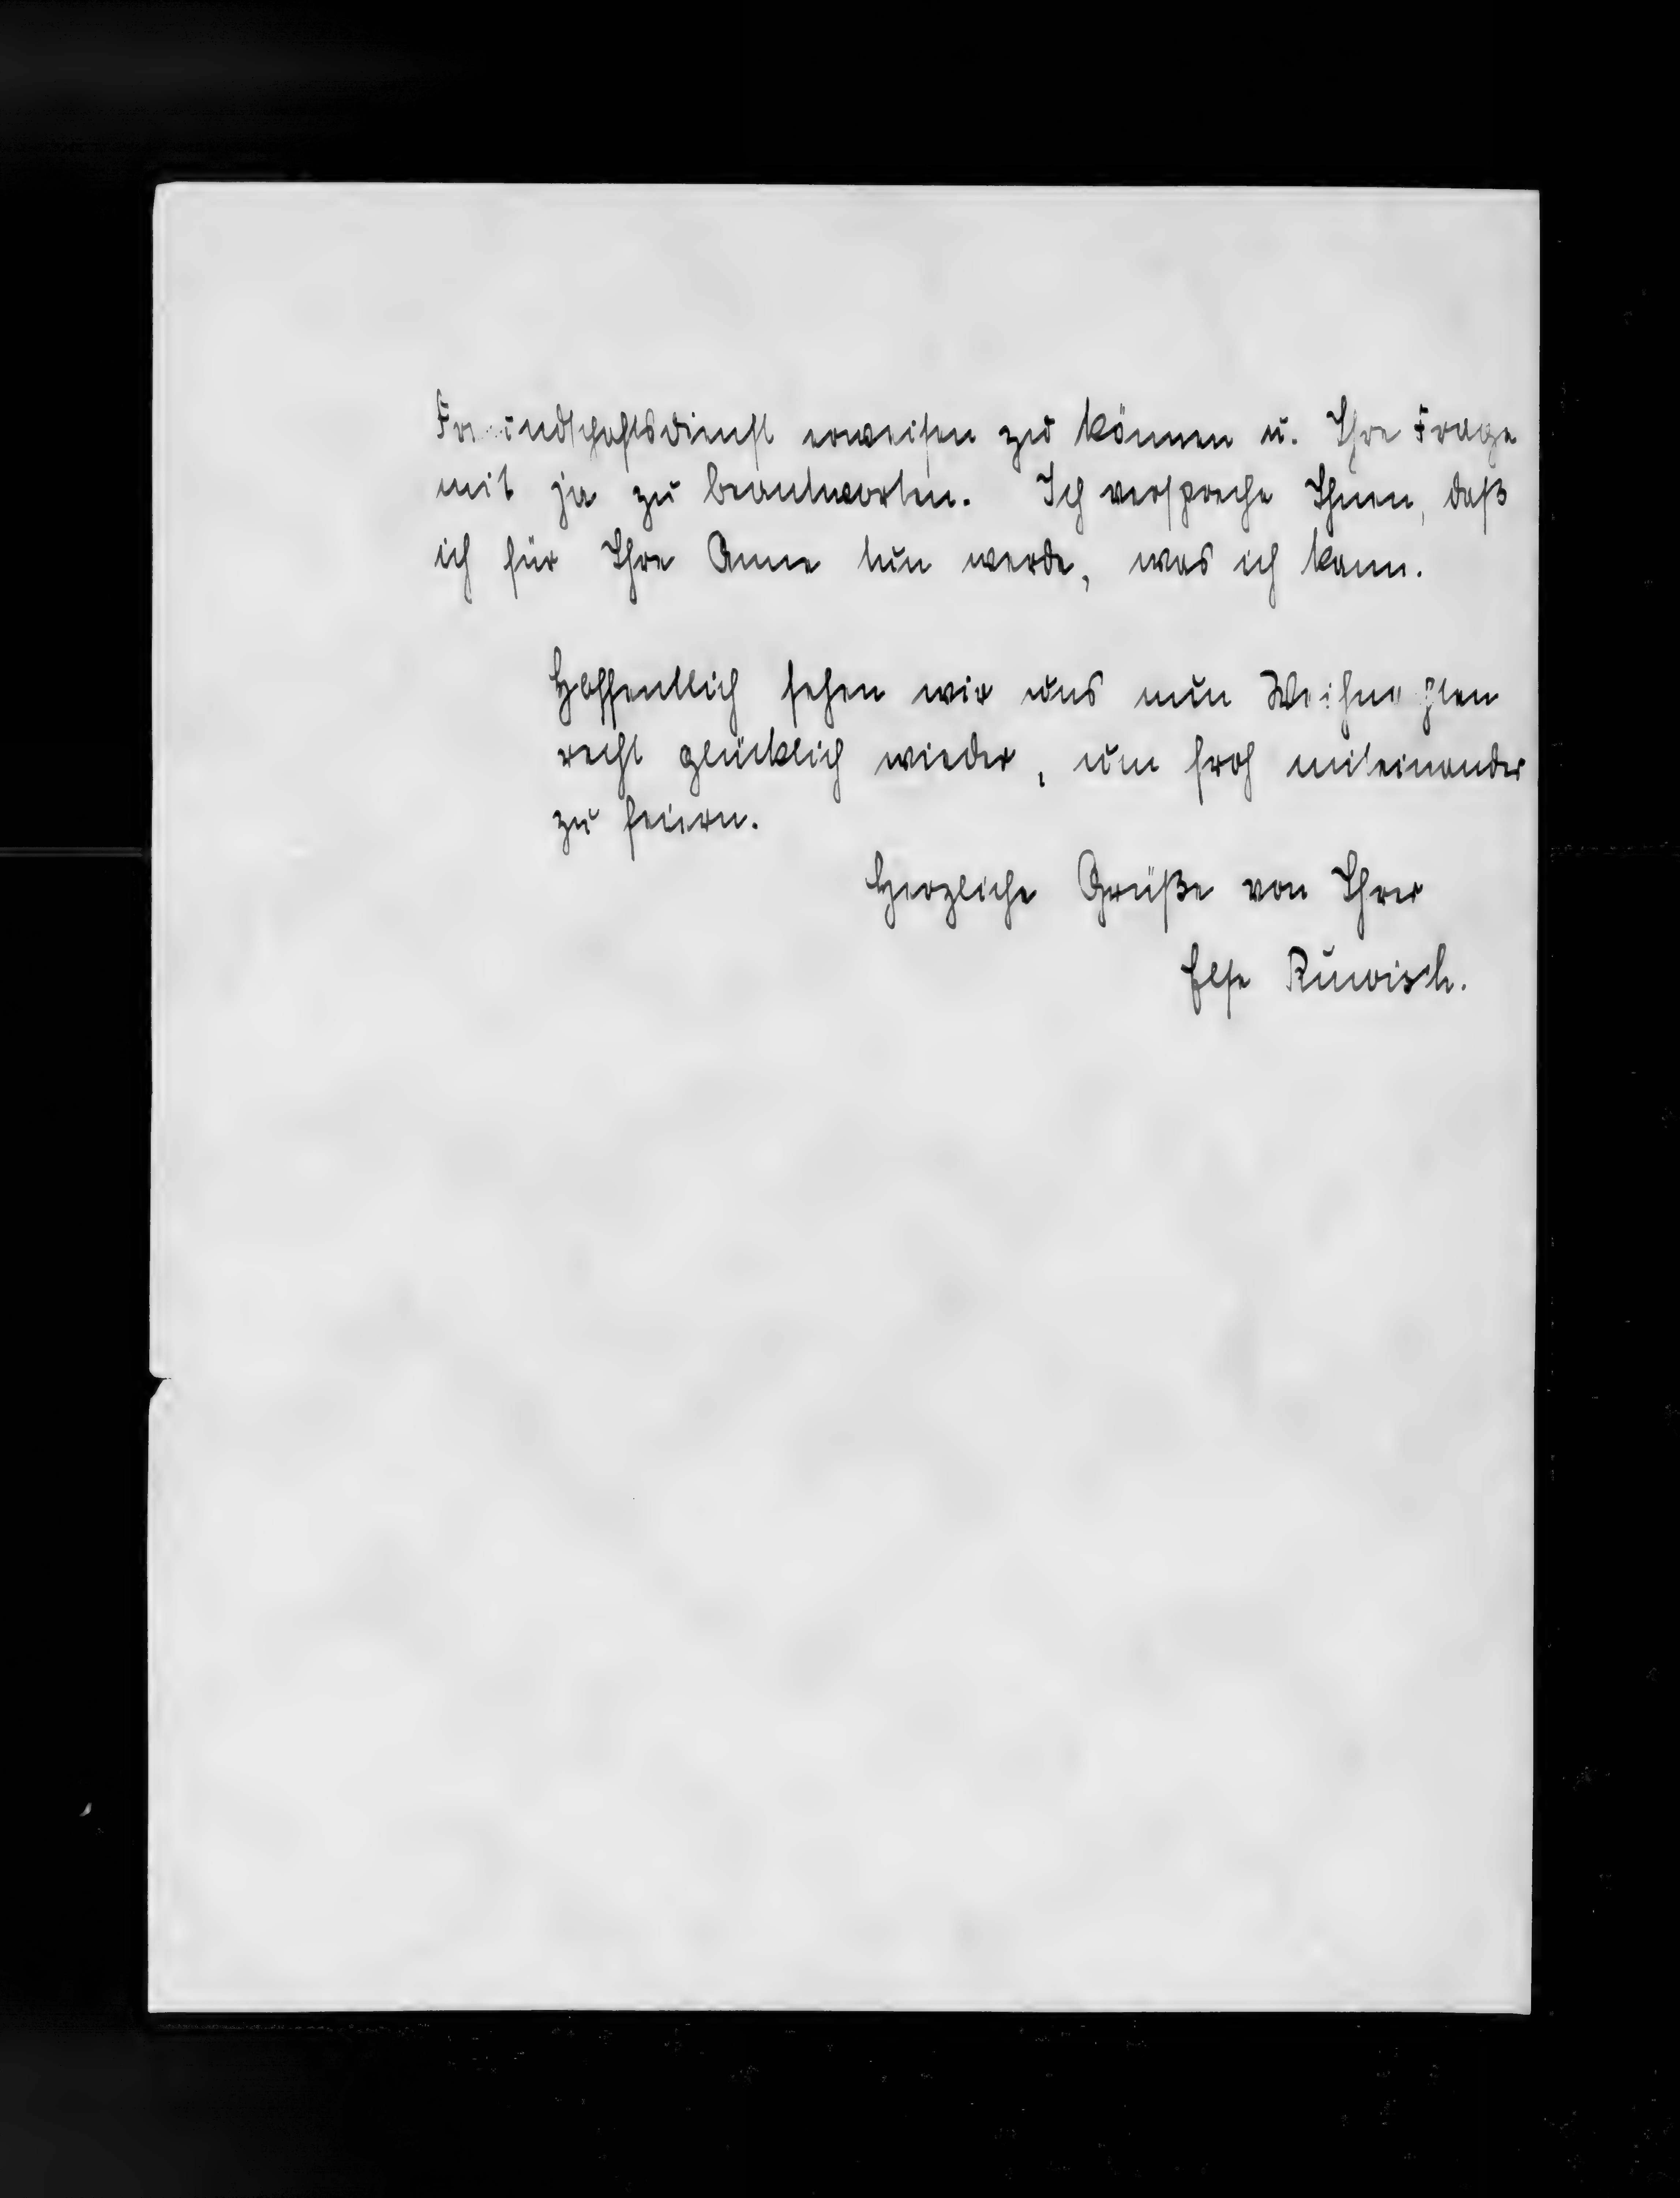 Freundschaftsdienst erweisen zu können u. Ihre Frage
mit ja zu beantworten. Ich verspreche Ihnen, daß
ich für Ihre Anne tun werde, was ich kann.
Hoffentlich sehen wir uns nun Weihnachten
recht glücklich wieder, um froh miteinander
zu feiern.
Herzliche Grüße von Ihrer
Else Ruwisch.